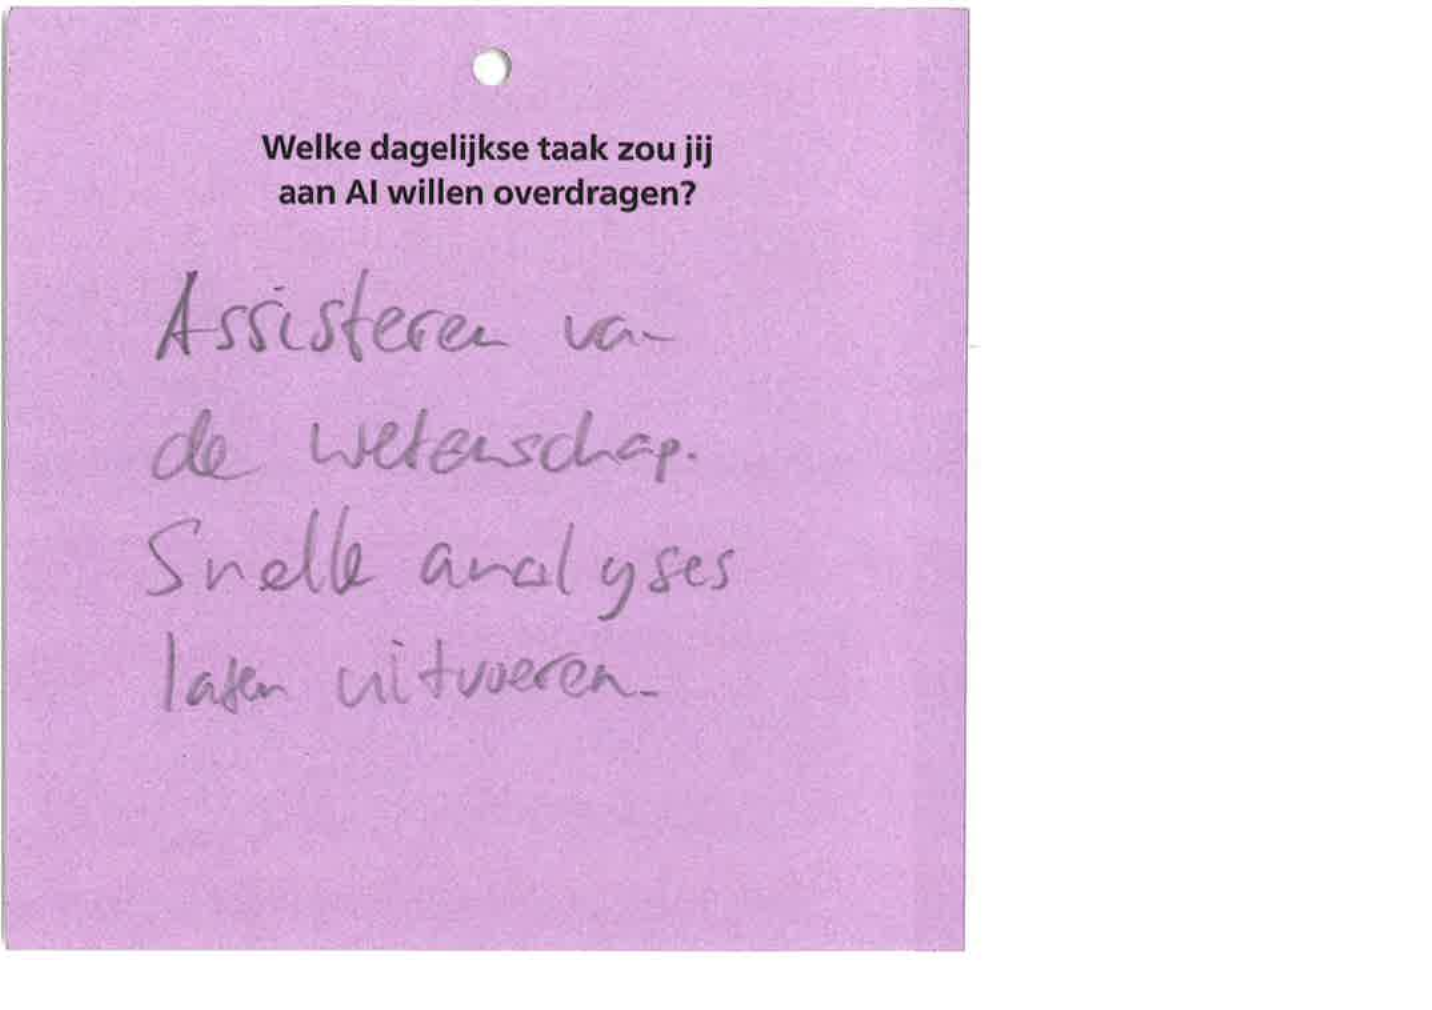 Welke dagelijkse taak zou jij
aan AI willen overdragen?
Assisteren van
de wetenschap.
Snelle analyses
laten uitvoeren.